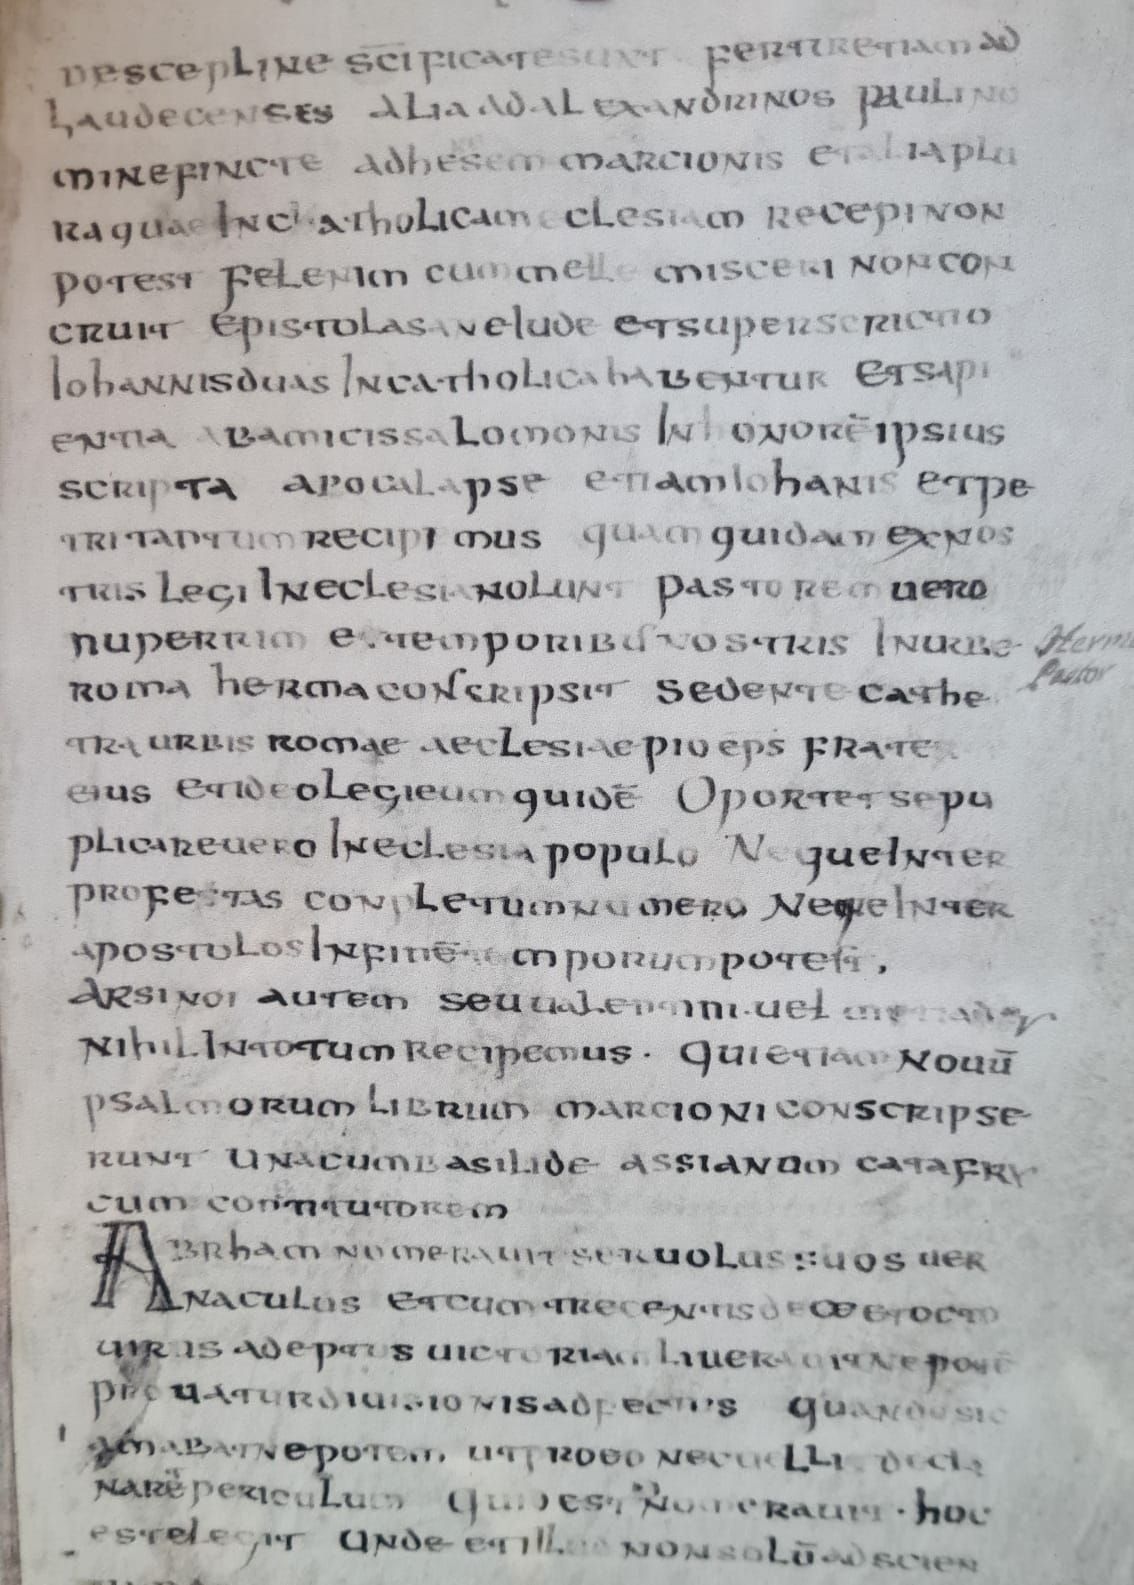 descepline scīficate sunt fertur etiam ad
Laudecenses alia ad alexandrinos pauli no
mine fincte ad hesem marcionis et alia plu
ra quae In chatholicam eclesiam recepi non
potest fel enim cum melle misceri non con
cruit epistola sane Iude et superscrictio
Iohannis duas In catholica habentur et sapi
entia ab amicis salomonis In honorē ipsius
scripta apocalapse etiam Iohanis et pe
tri tantum recipimus quam quidam ex nos
tris legi In eclesia nolunt pastorem uero
nuperrim e. temporibus nostris In urbe
roma herma conscripsit sedente cathe
tra urbis romae aeclesiae pio eps frater
eius et ideo legi eum quidē Oportet se pu
plicare uero In eclesia populo Neque Inter
profestas conpletum numero Neque Inter
apostolos In finē temporum potest,
Arsinoi autem seu ualentini. uel
nihil In totum recipemus. qui etiam nouū
psalmorum librum marcioni conscripse
runt una cum basilide assianum catafry
cum contitutorem
Abrham nomerauit seruolus suos uer
naculus et cum trecentis dece et octo
uiris adeptus uictoriam liuerauit nepotē
prouatur diuisionis adfectus quando sic
amabat nepotem ut pro eo nec uelli decli
narē periculum Quid est nomerauit. hoc
est elegit Unde et illud non solū ad scien
Herma
Pastor